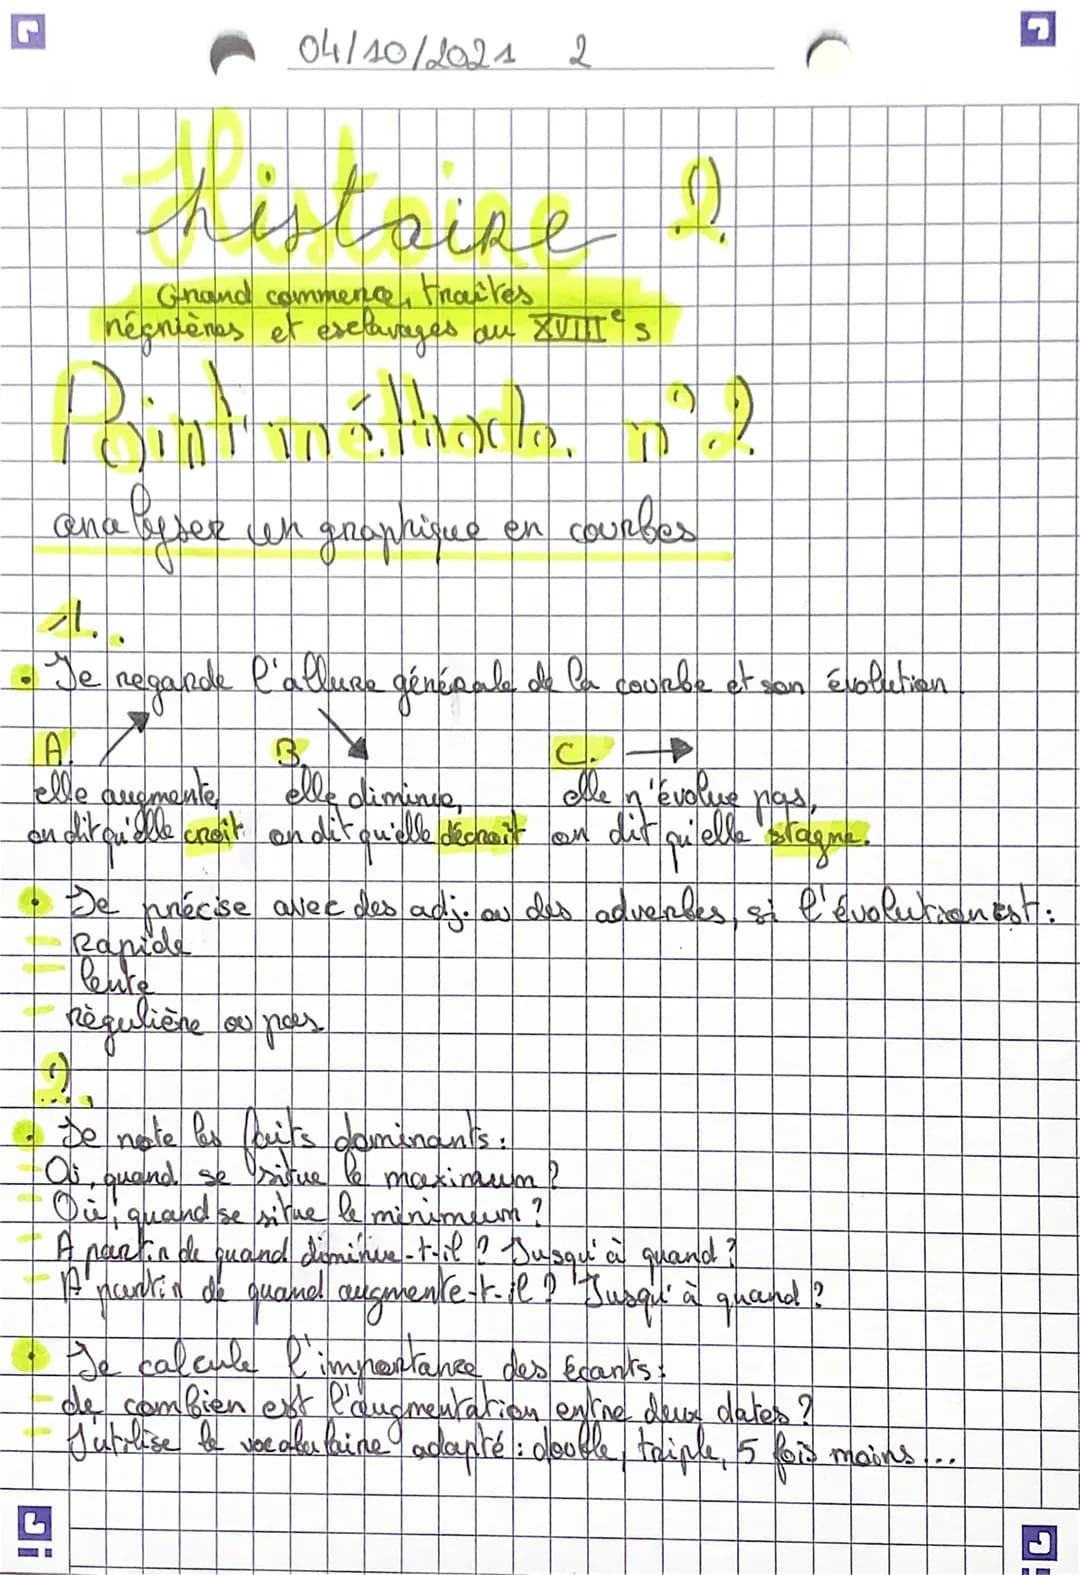 04/10/2021 2
Histoire 2.
Grand commerce, traites
négrières et esclavages au XVIIIe s
Point méthode n°2
analyser un graphique en courbes
1.
Je regarde l'allure générale de la courbe et son évolution
A. B. C.
elle augmente, elle diminue, elle n'évolue pas,
on dit qu'elle croit on dit qu'elle décroit on dit qu'elle stagne.
Je précise avec des adj. ou des adverbes, si l'évolution est :
- Rapide
- lente
- règulière ou pas
2.
Je note les faits dominants :
- Où, quand se situe le maximum ?
- Où, quand se situe le minimum ?
- A partir de quand diminue-t-il ? Jusqu'à quand ?
- A partir de quand augmente-t-il ? Jusqu'à quand ?
Je calcule l'importance des écarts :
- de combien est l'augmentation entre deux dates ?
- J'utilise le vocabulaire adapté : double, triple, 5 fois moins...